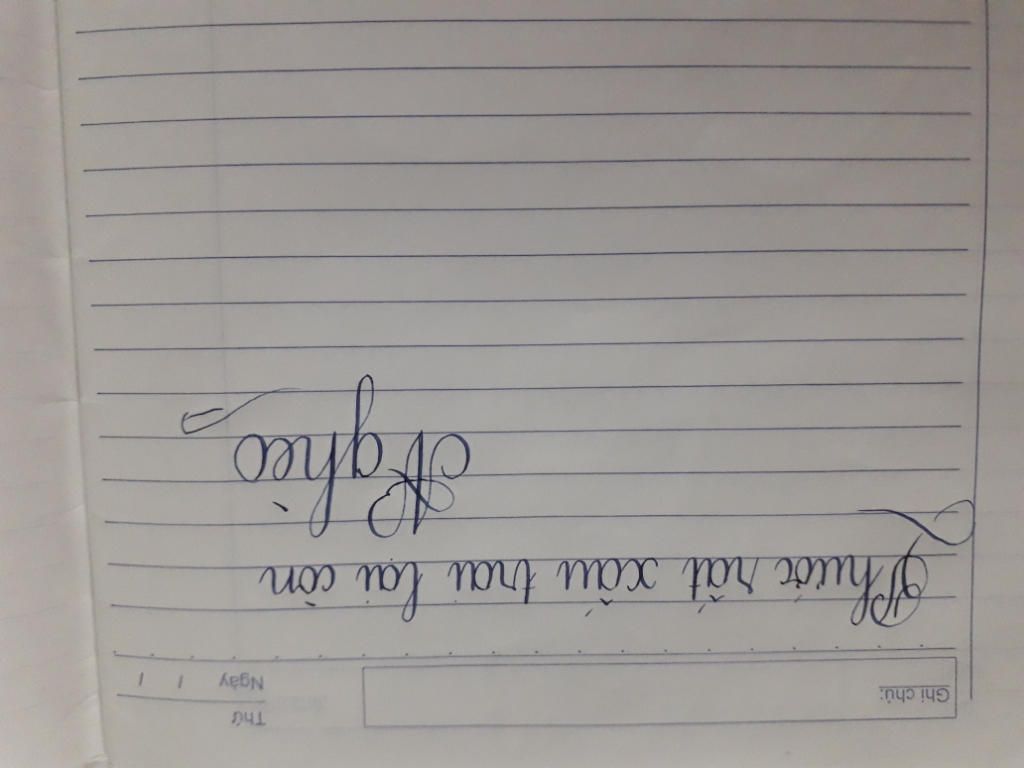 Thứ
Ghi chú:
Ngày / /
Phước rất xấu trai lại còn
Nghèo